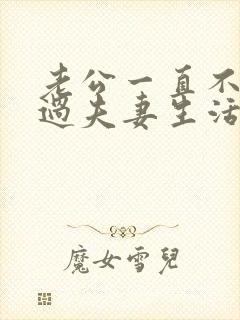 老公一直不
過夫妻生活
魔女雪兒